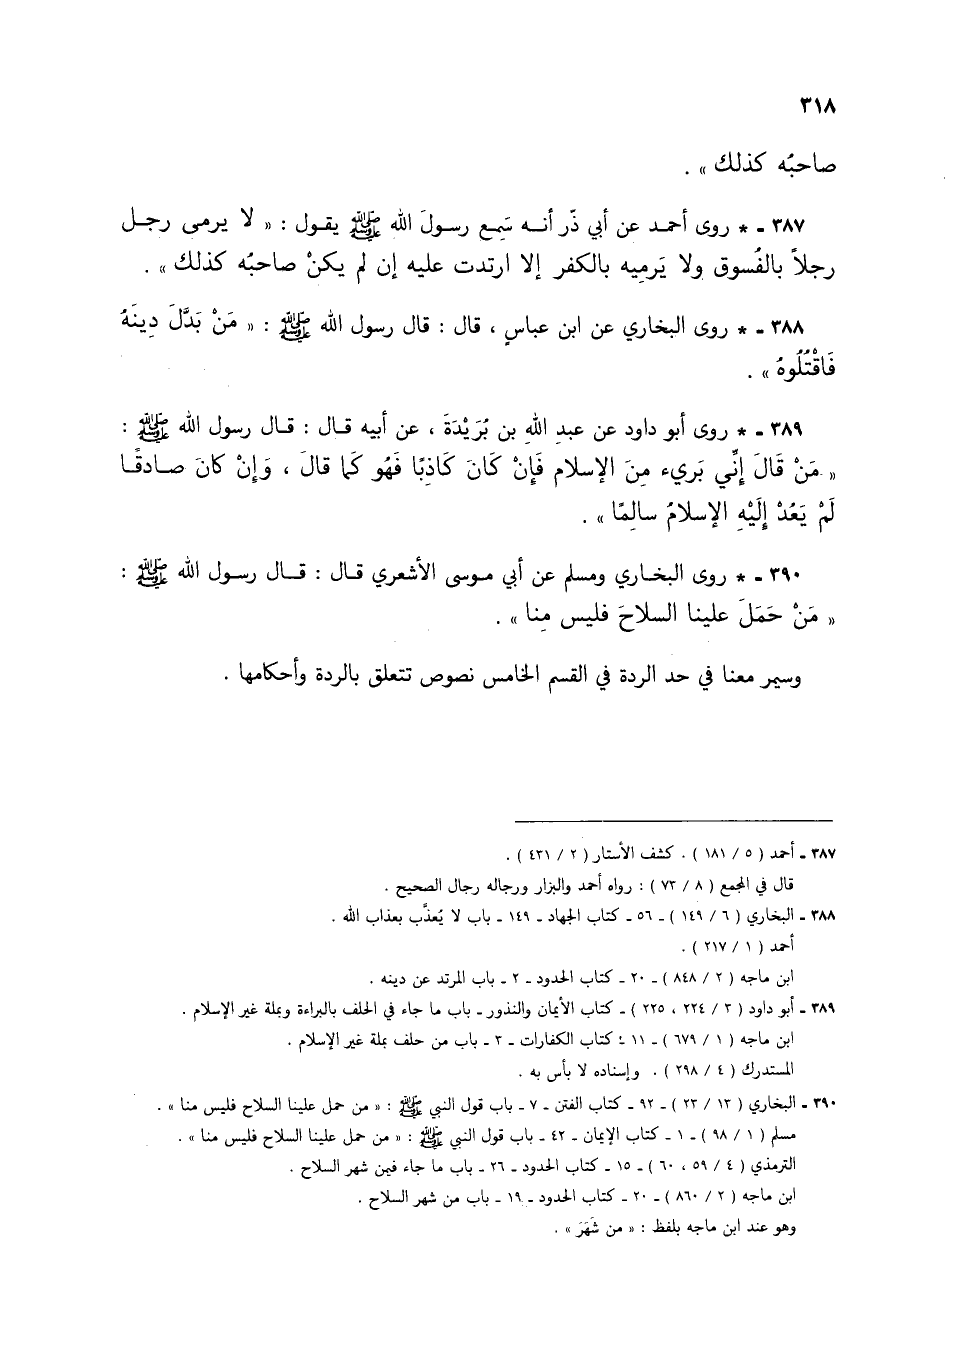 ٣١٨
صاحبُه كذلك » .
٣٨٧ ـ * روى أحمـد عن أبي ذّر أنـه سَمِـع رسـولَ الله ﷺ يقـول : « لا يرمى رجـل
رجلاً بالفُسوق ولا يَرمِيه بالكفر إلا ارتدت عليه إن لم يكنْ صاحبُه كذلك » .
٣٨٨ ـ * روى البخاري عن ابن عباسٍ ، قال : قال رسول الله ﷺ : « مَنْ بَدَّلَ دِينَهُ
فَاقْتُلُوهُ » .
٣٨٩ ـ * روى أبو داود عن عبدِ اللهِ بن بُرَيْدَةَ ، عن أبيه قـال : قـال رسول الله ﷺ :
« مَنْ قَالَ إِنِّي بَرِيء مِنَ الإسلام فَإِنْ كَانَ كَاذِبًا فَهُو كَما قالَ ، وَإِنْ كانَ صـادقًـا
لَمْ يَعُدْ إِلَيْهِ الإسلامُ سالِمًا » .
٣٩٠ ـ * روى البخـاري ومسلم عن أبي مـوسى الأشعري قـال : قـال رسـول الله ﷺ :
« مَنْ حَمَلَ علينا السلاحَ فليس مِنا » .
وسيمر معنا في حد الردة في القسم الخامس نصوص تتعلق بالردة وأحكامها .
٣٨٧ ـ أحمد ( ٥ / ١٨١ ) . كشف الأستار ( ٢ / ٤٣١ ) .
قال في المجمع ( ٨ / ٧٣ ) : رواه أحمد والبزار ورجاله رجال الصحيح .
٣٨٨ ـ البخاري ( ٦ / ١٤٩ ) ـ ٥٦ ـ كتاب الجهاد ـ ١٤٩ ـ باب لا يُعذَّب بعذاب الله .
أحمد ( ١ / ٢١٧ ) .
ابن ماجه ( ٢ / ٨٤٨ ) ـ ٢٠ ـ كتاب الحدود ـ ٢ ـ باب المرتد عن دينه .
٣٨٩ ـ أبو داود ( ٣ / ٢٢٤ ، ٢٢٥ ) ـ كتاب الأيمان والنذور ـ باب ما جاء في الحلف بالبراءة وبملة غير الإسلام .
ابن ماجه ( ١ / ٦٧٩ ) ـ ١١ ـ كتاب الكفارات ـ ٣ ـ باب من حلف بملة غير الإسلام .
المستدرك ( ٤ / ٢٩٨ ) . وإسناده لا بأس به .
٣٩٠ ـ البخاري ( ١٣ / ٢٣ ) ـ ٩٢ ـ كتاب الفتن ـ ٧ ـ باب قول النبي ﷺ : « من حمل علينا السلاح فليس منا » .
مسلم ( ١ / ٩٨ ) ـ ١ ـ كتاب الإيمان ـ ٤٢ ـ باب قول النبي ﷺ : « من حمل علينا السلاح فليس منا » .
الترمذي ( ٤ / ٥٩ ، ٦٠ ) ـ ١٥ ـ كتاب الحدود ـ ٢٦ ـ باب ما جاء فيمن شهر السلاح .
ابن ماجه ( ٢ / ٨٦٠ ) ـ ٢٠ ـ كتاب الحدود ـ ١٩ ـ باب من شهر السلاح .
وهو عند ابن ماجه بلفظ : « من شَهَرَ » .